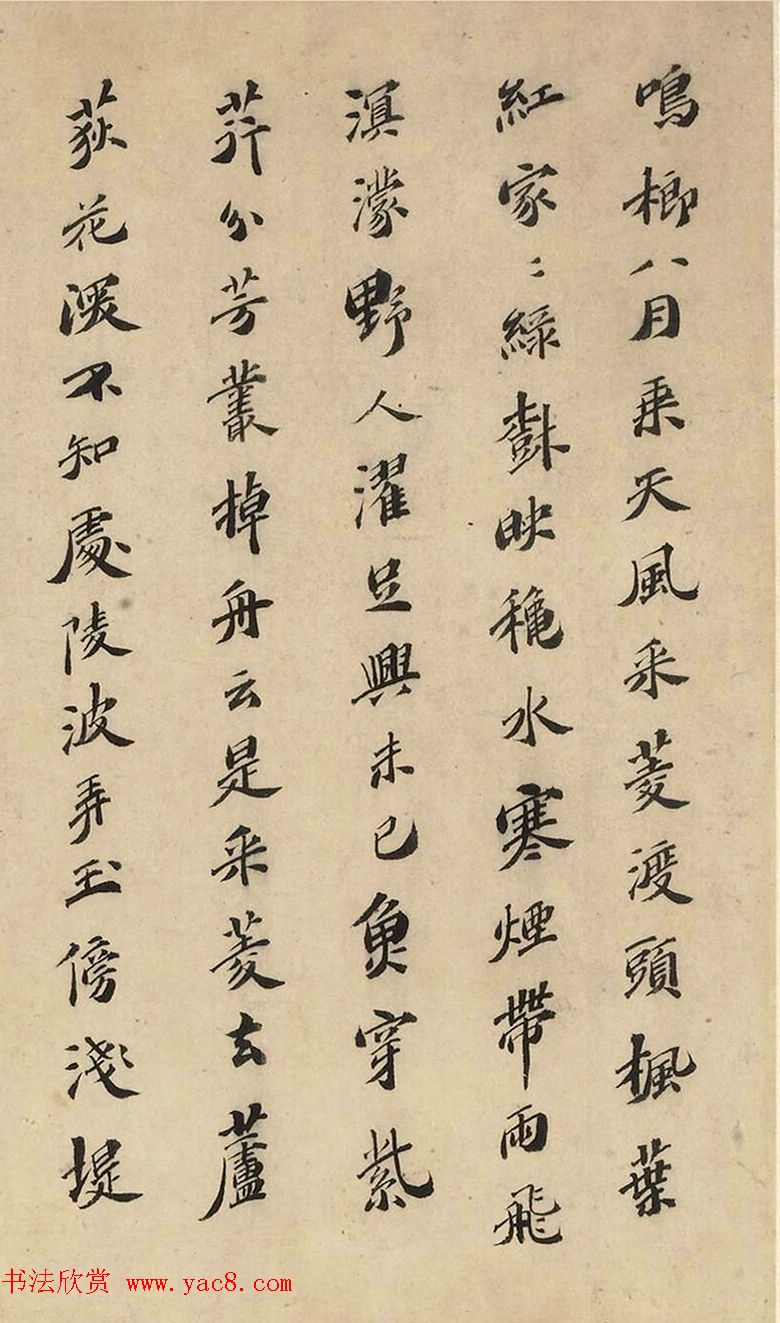 鳴榔八月乘天風采菱渡頭楓葉
紅家〻綠樹映穐水寒煙帶雨飛
溟濛野人濯足興未已魚穿紫
荇分芳叢棹舟云是采菱去蘆
荻花深不知處陵波弄玉傍淺堤
书法欣赏 www.yac8.com